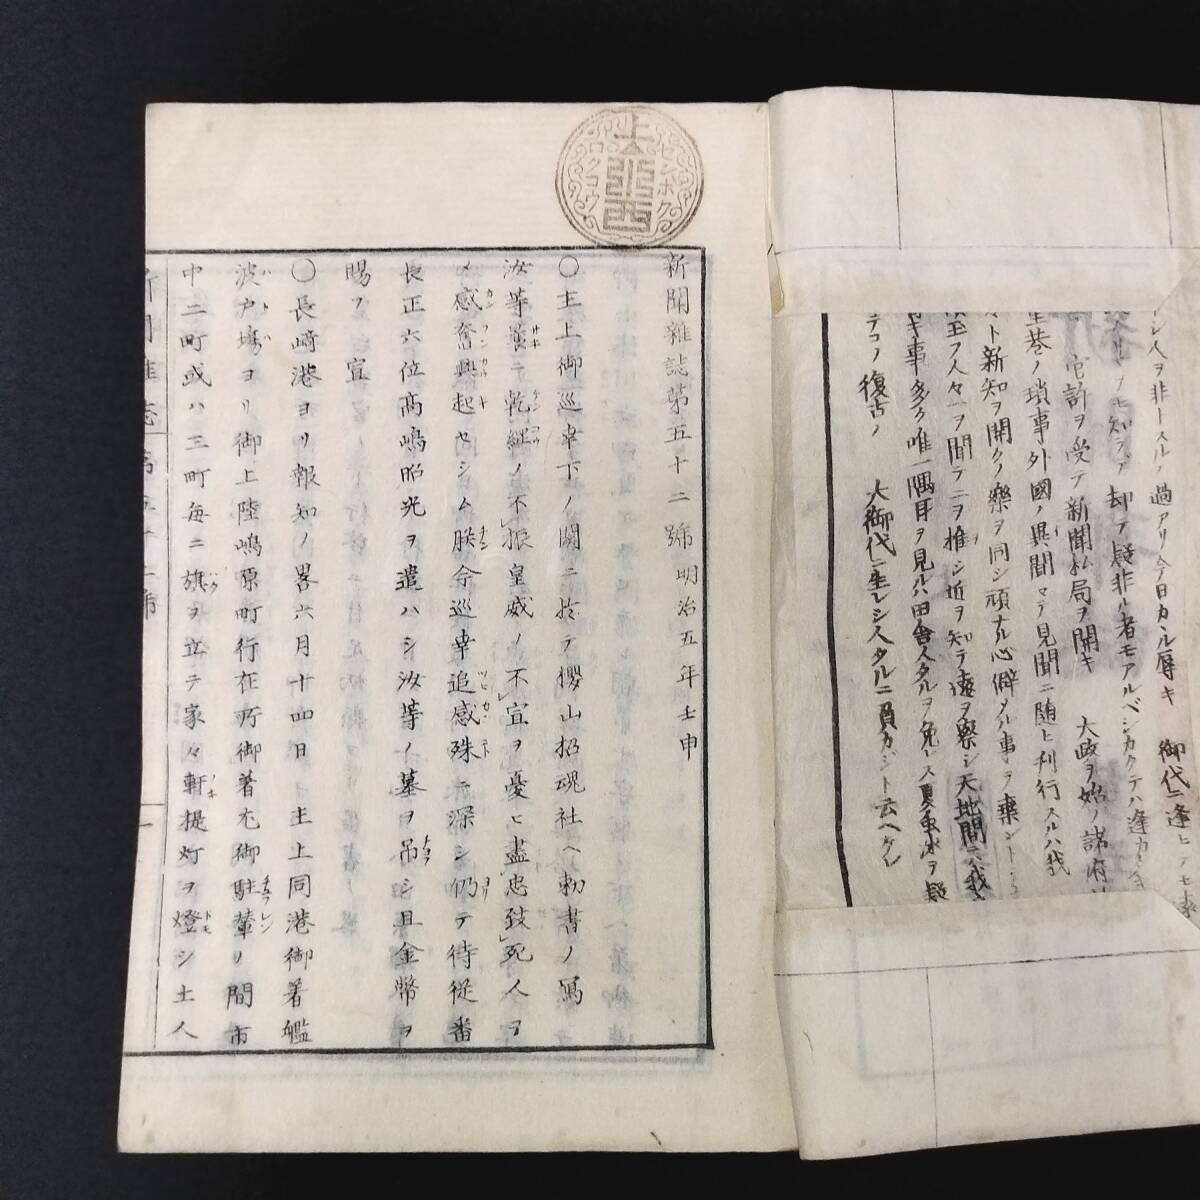 トレ人ヲ非トスルノ過アリ今日カヽル辱キ 御代ニ逢ヒ
知ラデ却テ疑非ル者モアルベシカクテハ逢カ
官許ヲ受テ新聞私局ヲ開キ 大政ヲ始ノ諸府
里巷ノ瑣事外國ノ異聞マデ見聞ニ随ヒ刋行スルハ我
ト新知ヲ開クノ樂ヲ同シ頑ナル心僻タル事ヲ棄ント
玉フ人々一ヲ聞テ二ヲ推シ近ヲ知テ遠ヲ察シ天地間
キ事多ク唯一隅耳ヲ見ルハ田舎人タルヲ免レス夏虫氷ヲ疑
テコノ復古ノ 大御代ニ生レシ人タルニ負カジト云ヘケレ
上
西
センボク
ロクゴウ
新聞雜誌第五十二號 明治五年壬申
〇主上御巡幸下ノ關ニ於テ櫻山招魂社ヘ勅書ノ寫
汝等曩テ乾綱ノ不振皇威ノ不宣ヲ憂ヒ盡忠致死人ヲ
メ感奮興起セシム朕今巡幸追感殊ニ深シ仍テ侍從番
長正六位高嶋昭光ヲ遣ハシ汝等ノ墓ヲ吊シ且金幣ヲ
賜フ宣
〇長崎港ヨリ報知ノ畧六月十四日 主上同港御著艦
波戸塲ヨリ御上陸嶋原町行在所御著尤御駐輦ノ間市
中二町或ハ三町毎ニ旗ヲ立テ家々軒提灯ヲ燈シ土人